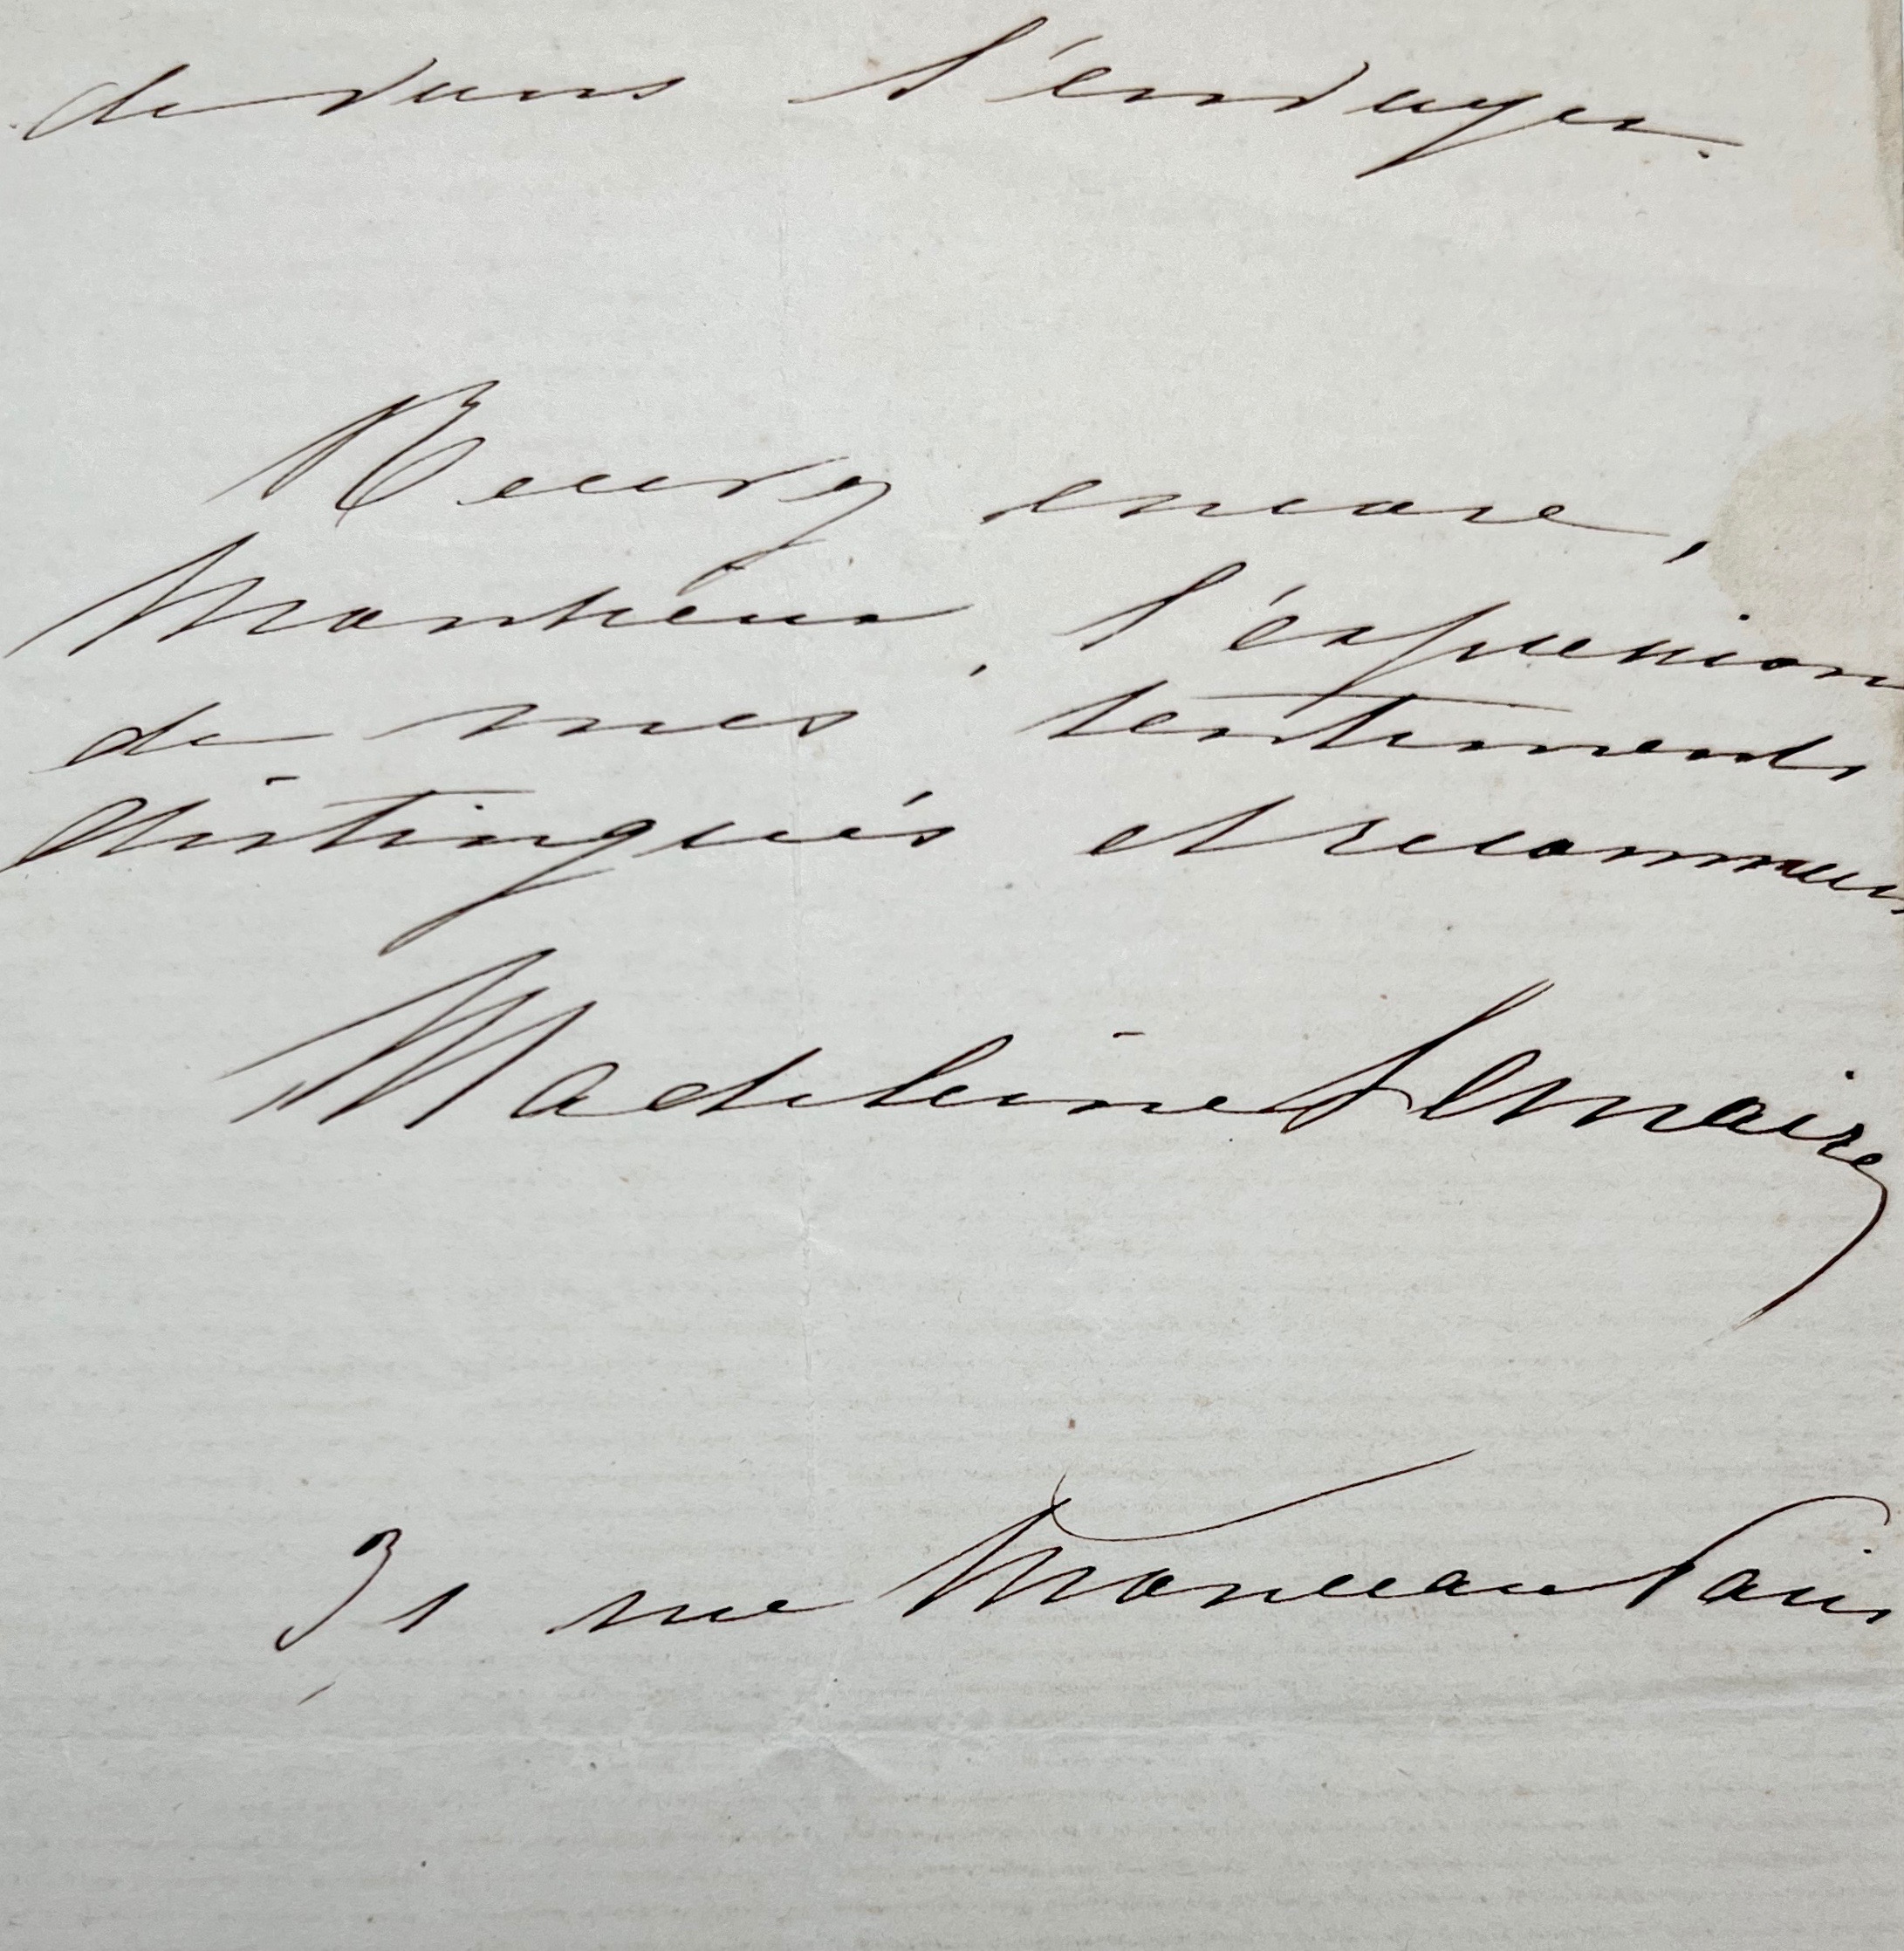 de vous l'envoyer.
Recevez encore,
Monsieur, l'expression
de mes sentiments
distingués et reconnais
Madeleine Lemaire
31 rue Monceau Paris